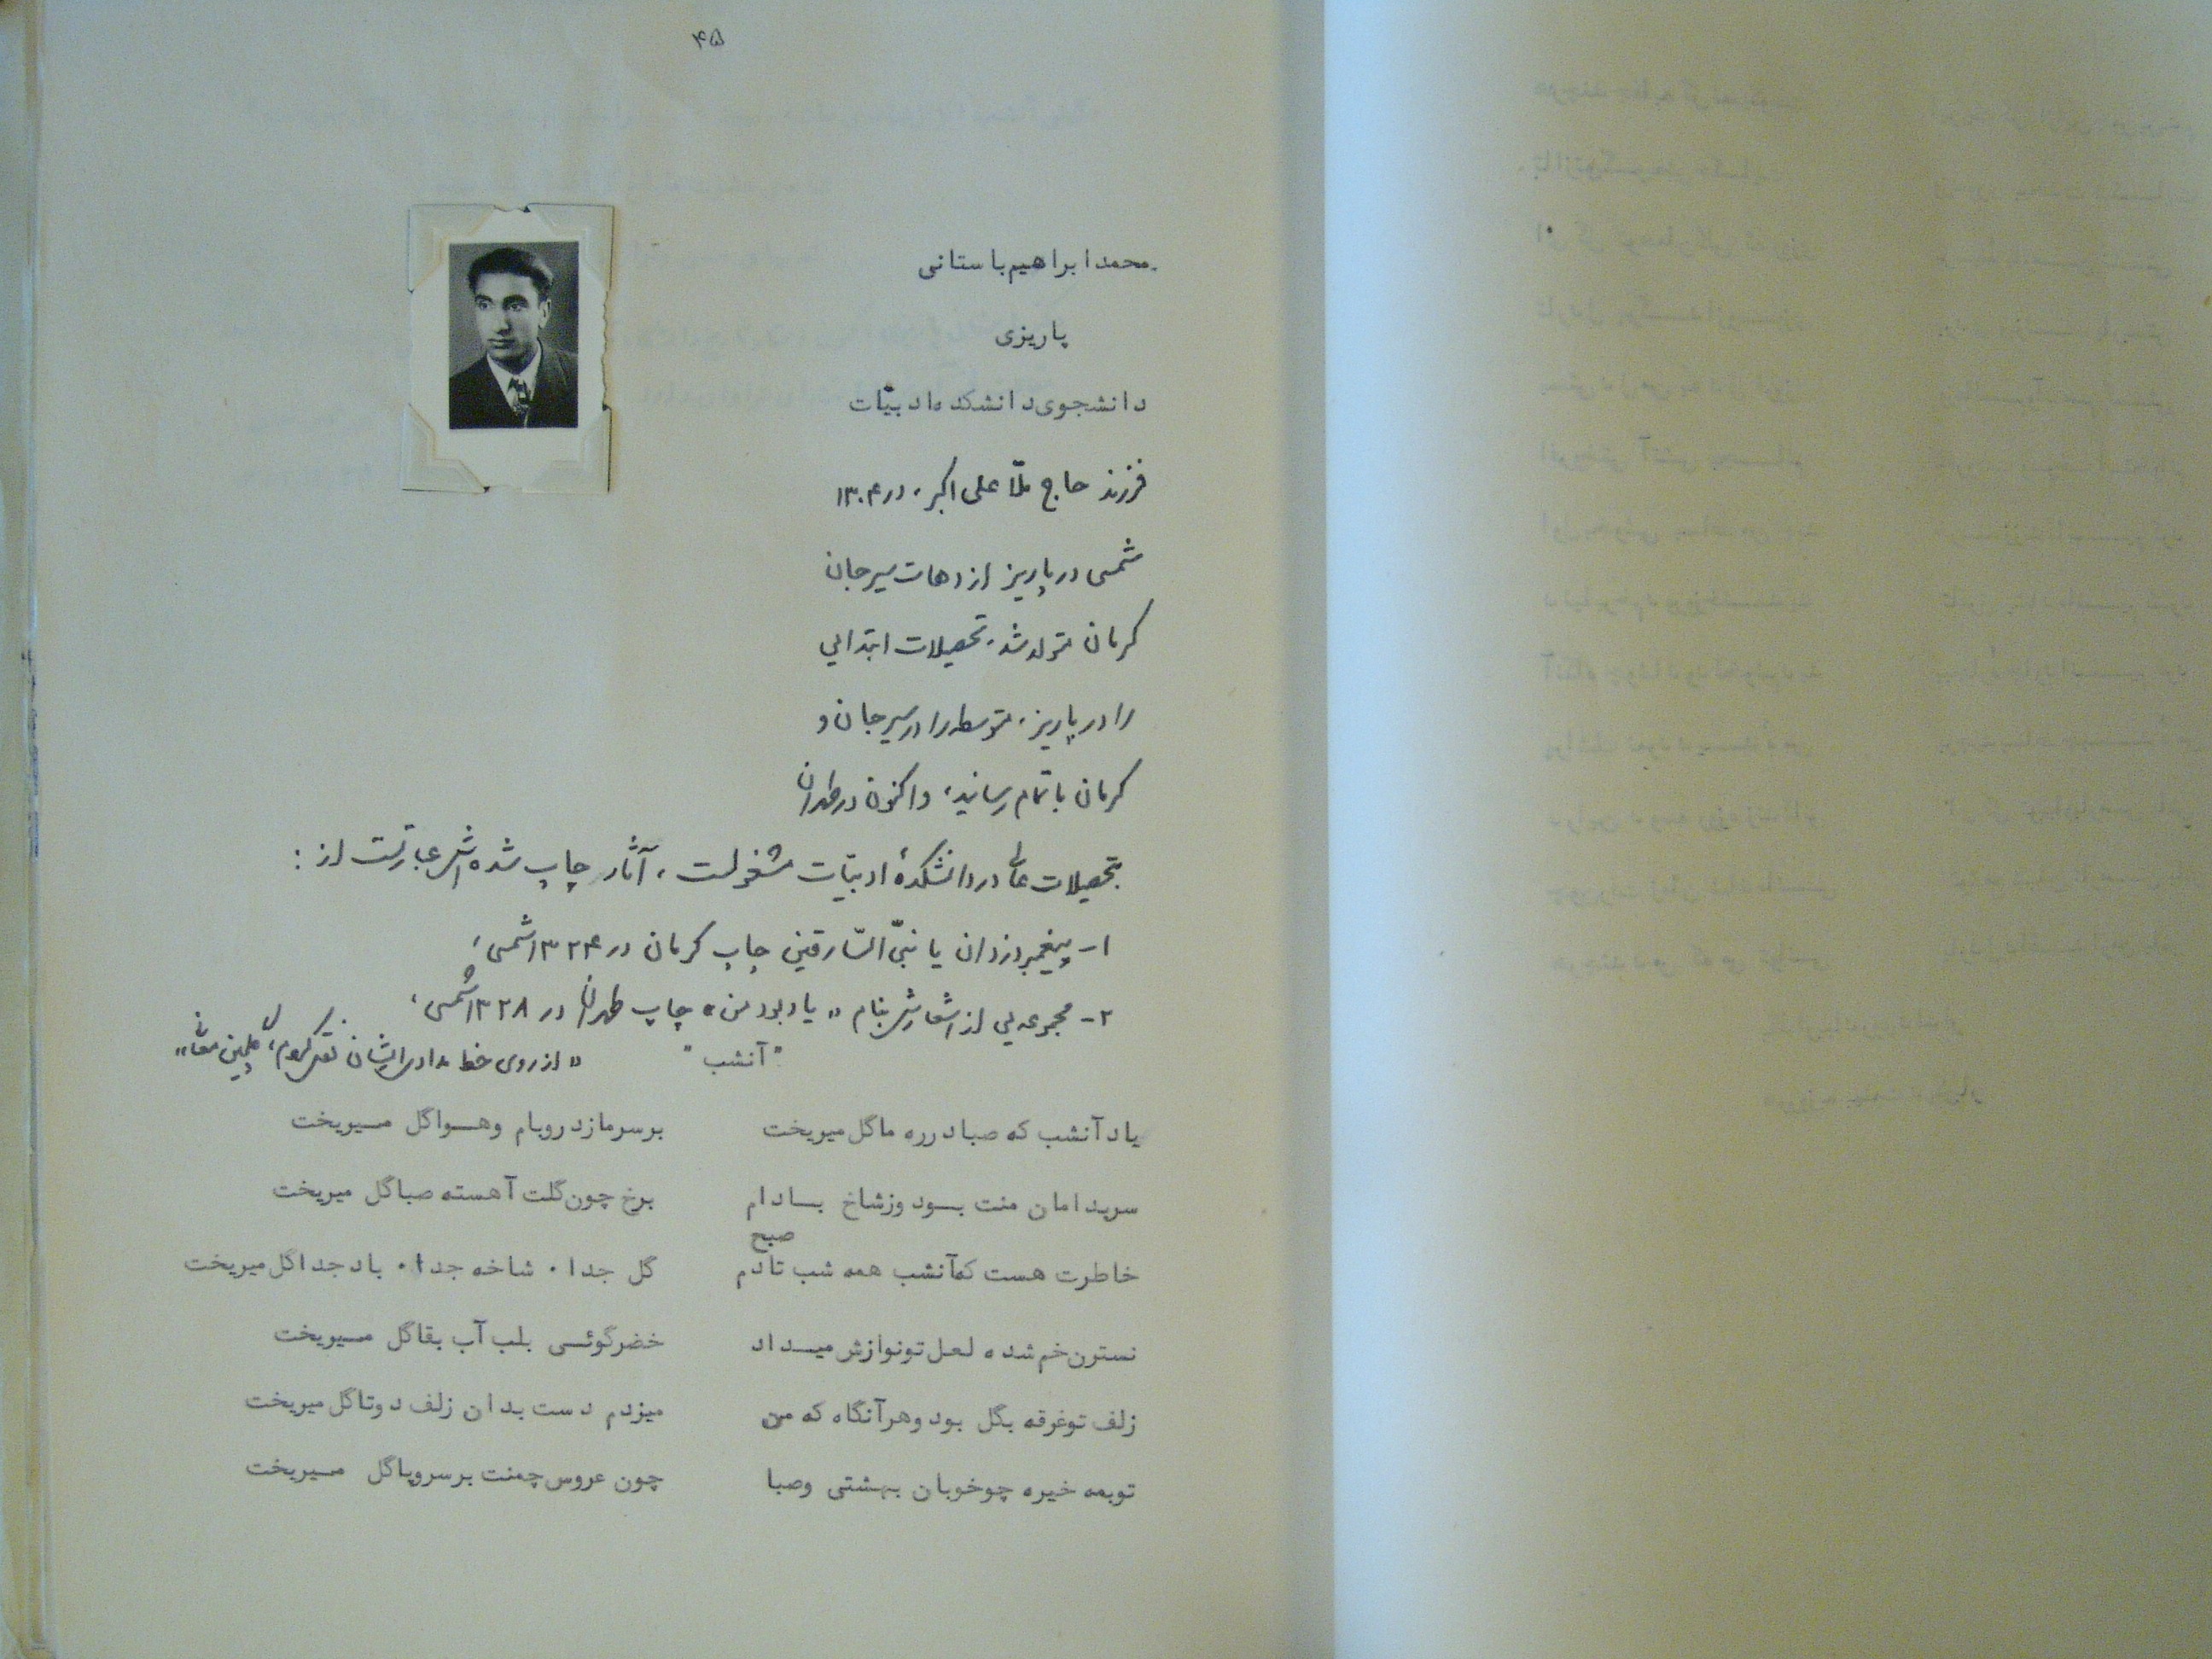 ۴۵
محمد ابراهیم باستانی
پاریزی
دانشجوی دانشکده ادبیّات
فرزند حاج ملّا علی اکبر، در ۱۳۰۴
شمسی در پاریز از دهات سیرجان
کرمان متولد شد. تحصیلات ابتدایی
را در پاریز، متوسطه را در سیرجان و
کرمان باتمام رسانید، و اکنون در طهران
بتحصیلات عالی در دانشکدهٔ ادبیّات مشغولست، آثار چاپ شده اش عبارتست از :
۱- پیغمبر دزدان یا نبیّ السّارقین چاپ کرمان در ۱۳۲۴ شمسی،
۲- مجموعه یی از اشعارش بنام «یادبود من» چاپ طهران در ۱۳۲۸ شمسی،
"آنشب" «از روی خط مدادی ایشان نقل کردم،
یاد آنشب که صبا در ره ما گل میریخت بر سر ما ز در و بام و هوا گل میریخت
سر بدامان منت بود و ز شاخ بادام بر رخ چون گلت آهسته صبا گل میریخت
خاطرت هست که آنشب همه شب تا دم صبح گل جدا، شاخه جدا، باد جدا گل میریخت
نسترن خم شده لعل تو نوازش میداد خضر گوئی بلب آب بقا گل میریخت
زلف تو غرقه بگل بود و هر آنگاه که من میزدم دست بدان زلف دوتا گل میریخت
تو بمه خیره چو خوبان بهشتی و صبا چون عروس چمنت بر سر و پا گل میریخت